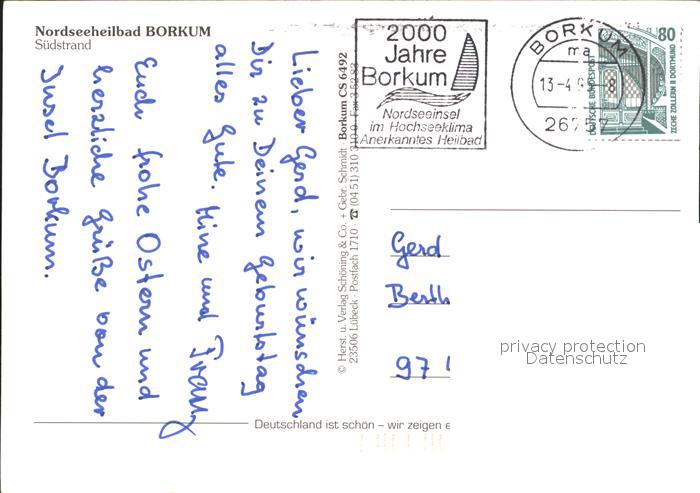 Nordseeheilbad BORKUM
Südstrand
Lieber Gerd, wir wünschen
Dir zu Deinem Geburtstag
alles Gute. Hine und Franz
Euch frohe Ostern und
herzliche Grüße von der
Insel Borkum.
Deutschland ist schön – wir zeigen e
© Herst. u. Verlag Schöning & Co. + Gebr. Schmidt · Borkum CS 6492
23506 Lübeck · Postfach 1710 · ☎ (04 51) 310 310-0 · Fax 3 52 82
2000
Jahre
Borkum
Nordseeinsel
im Hochseeklima
Anerkanntes Heilbad
BORKUM
ma
13-4.9 -8
26757
80
DEUTSCHE BUNDESPOST
ZECHE ZOLLERN II DORTMUND
Gerd
Berth
97
privacy protection
Datenschutz